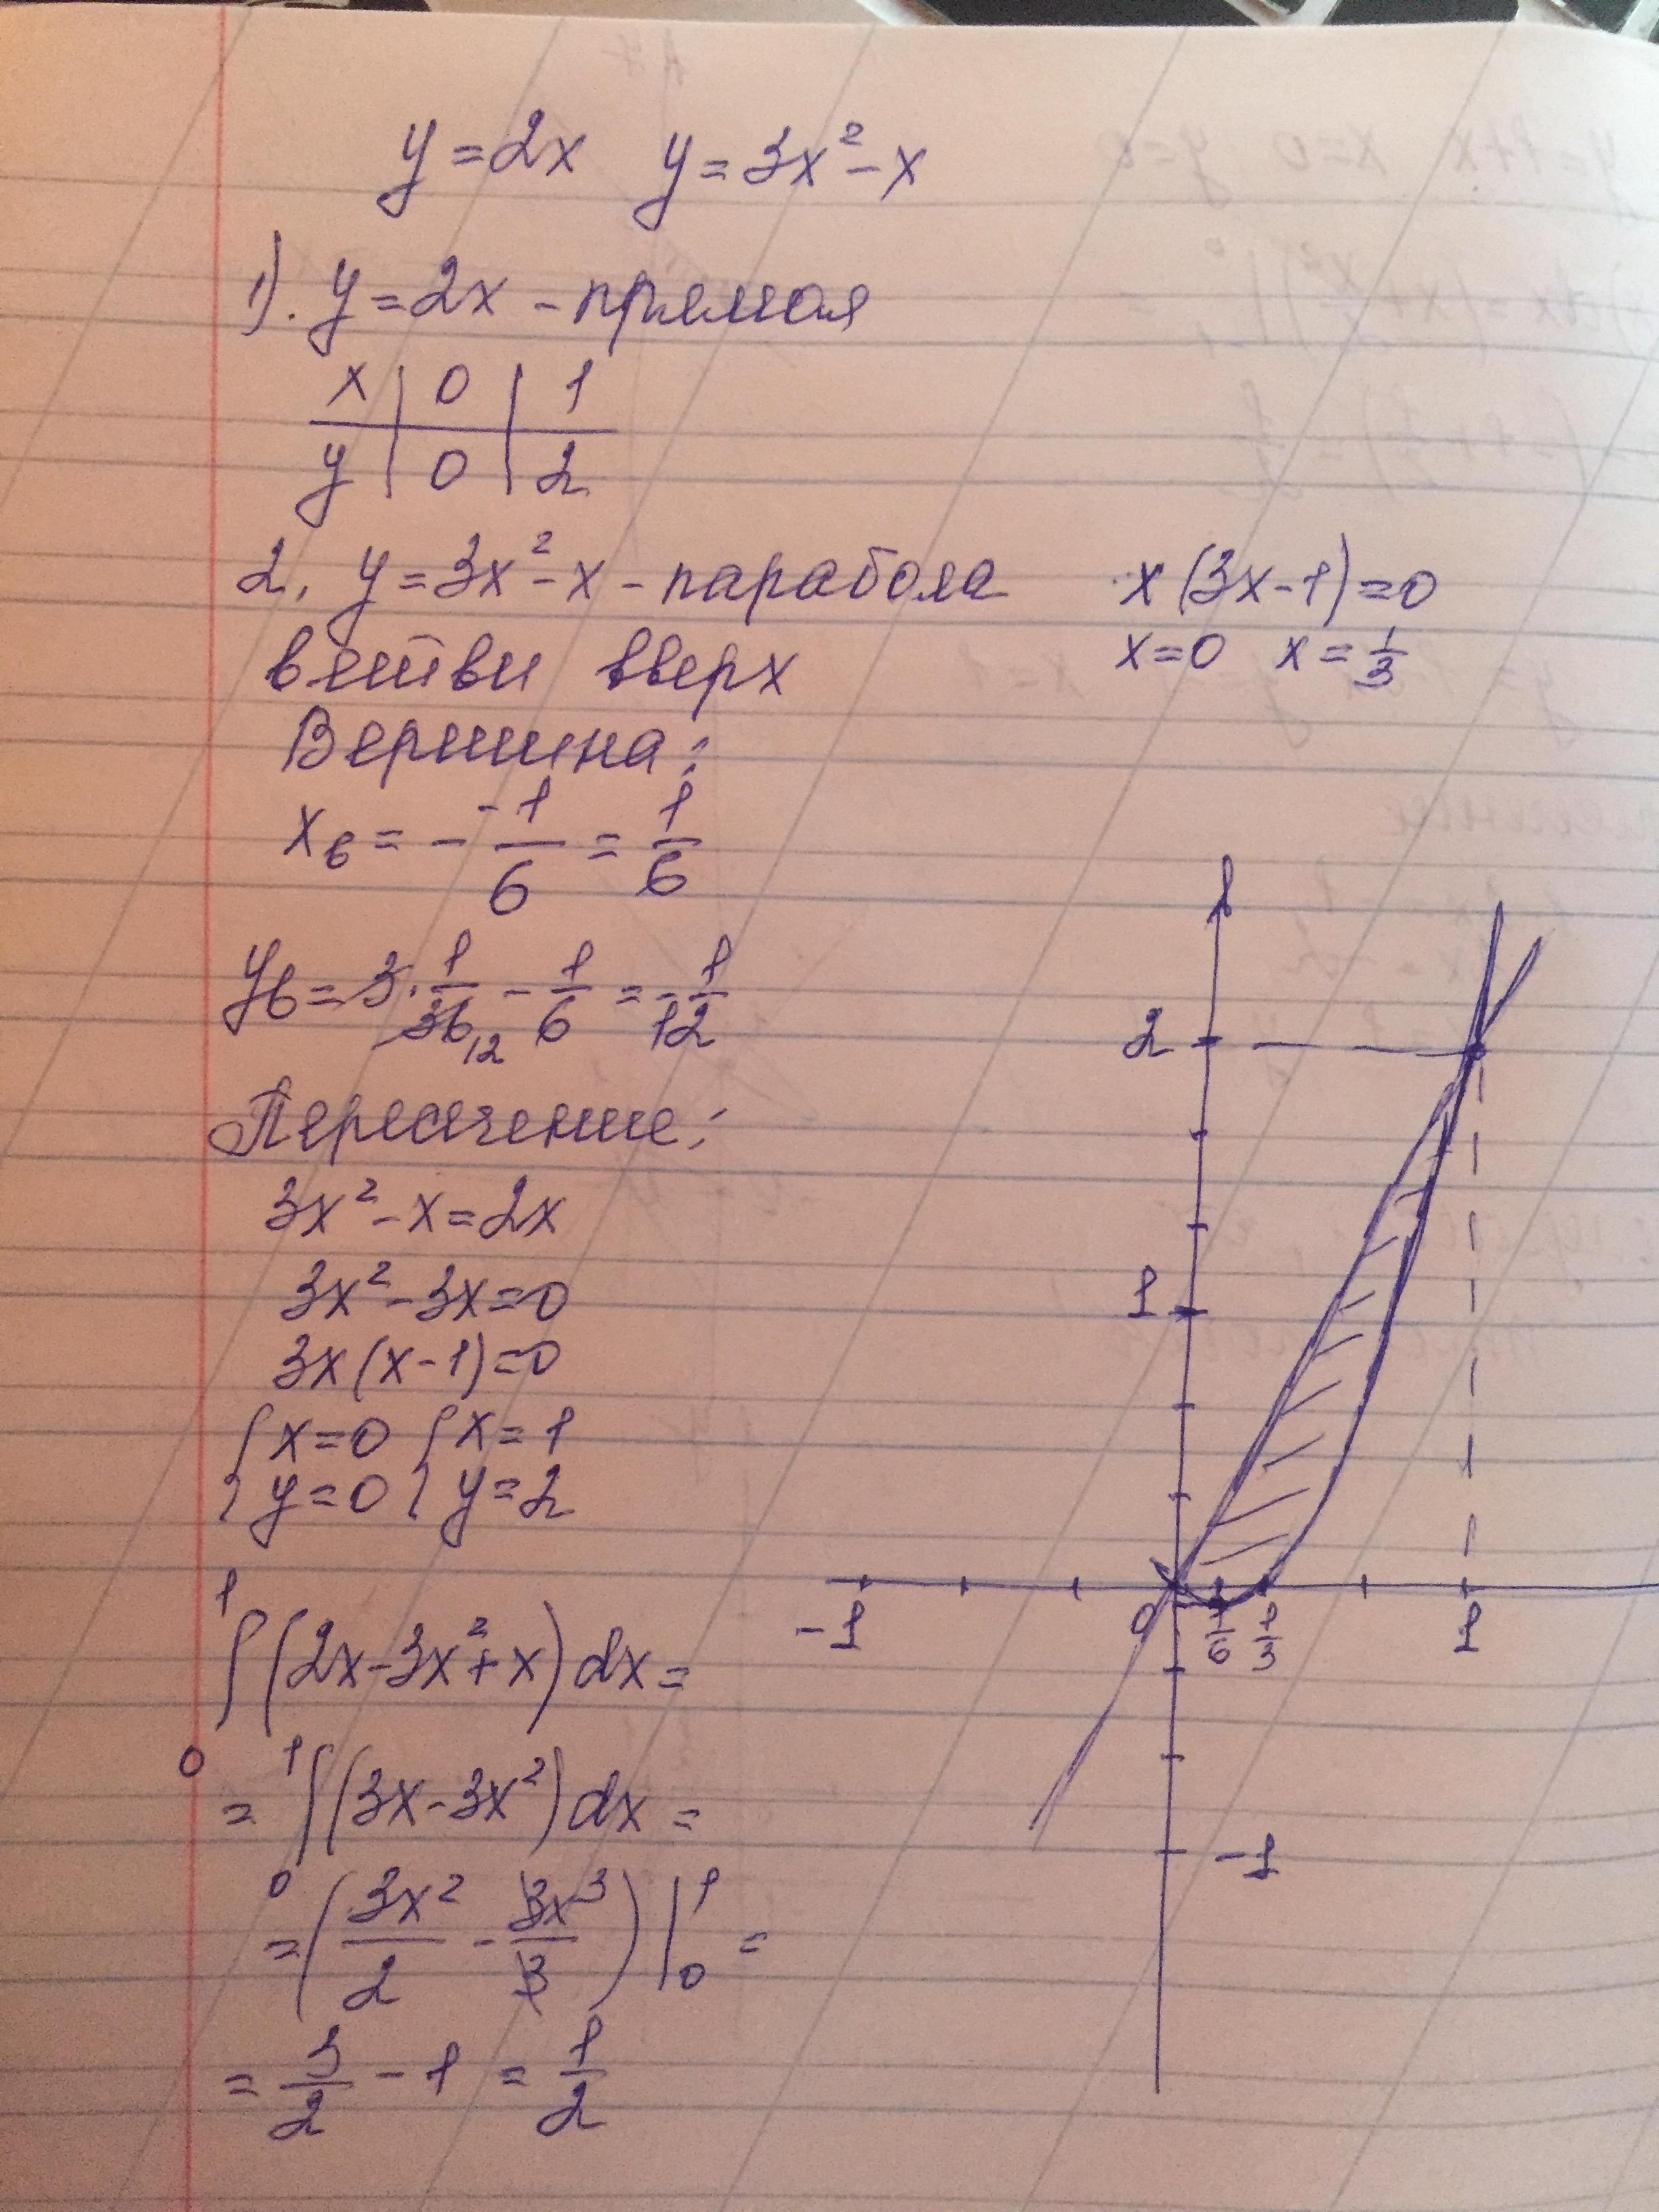 y=2x y=3x²-x
1). y=2x - прямая
x | 0 | 1
y | 0 | 2
2. y=3x²-x - парабола
ветви вверх
x(3x-1)=0
x=0 x=1/3
Вершина:
xв = - -1/6 = 1/6
yв = 3·1/36 - 1/6 = -1/12
12
Пересечение:
3x²-x=2x
3x²-3x=0
3x(x-1)=0
{x=0 {x=1
{y=0 {y=2
∫₀¹(2x-3x²+x)dx=
= ∫₀¹(3x-3x²)dx=
=(3x²/2 - 3x³/3)|₀¹ =
= 3/2 - 1 = 1/2
2
1
-1 0 1/6 1/3 1
-1